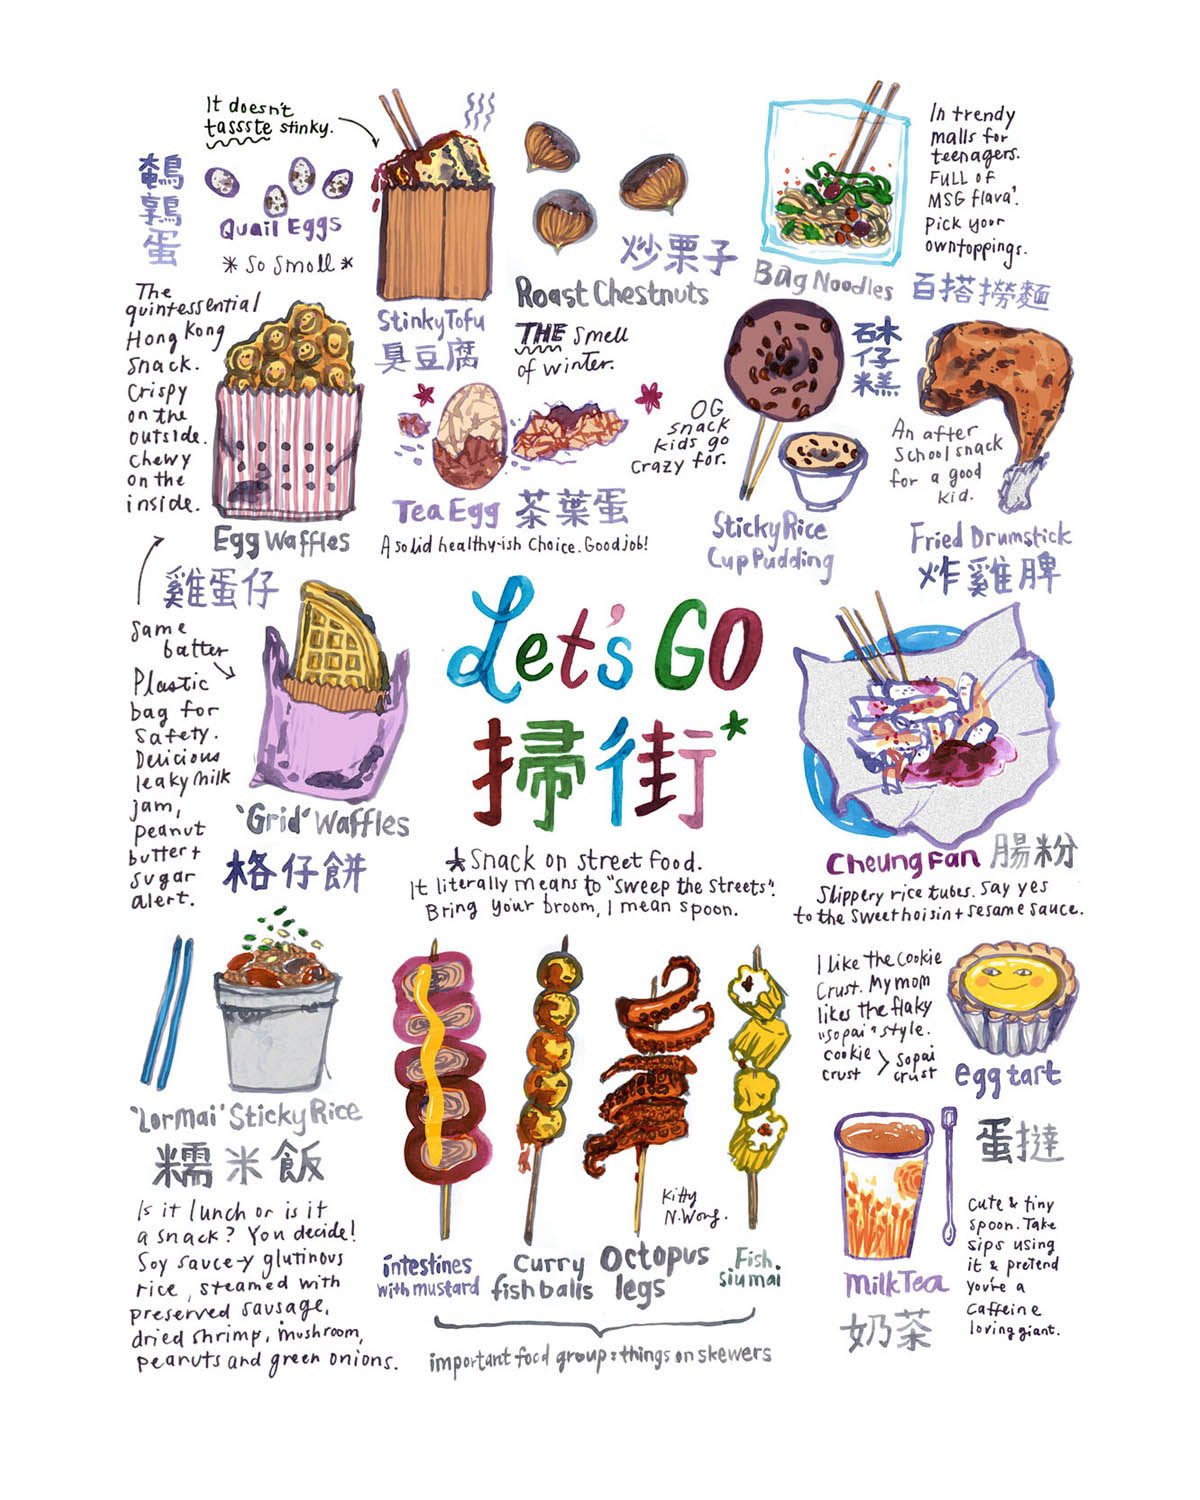 It doesn't
tassste stinky.
鵪
鶉
蛋
Quail Eggs
* So Small *
Stinky Tofu
臭豆腐
炒栗子
Roast Chestnuts
THE Smell
of winter.
In trendy
malls for
teenagers.
FULL OF
MSG flava'.
Pick your
own toppings.
Bag Noodles
百搭撈麵
The
quintessential
Hong Kong
Snack.
Crispy
on the
outside.
Chewy
on the
inside.
Egg Waffles
雞蛋仔
Tea Egg 茶葉蛋
A solid healthy-ish choice. Good job!
OG
snack
kids go
crazy for.
砵
仔
糕
Sticky Rice
Cup Pudding
An after
School snack
for a good
kid.
Fried Drumstick
炸雞脾
Same
batter
Plastic
bag for
Safety.
Delicious
leaky milk
jam,
peanut
butter +
sugar
alert.
'Grid' Waffles
格仔餅
Let's GO
掃街*
* Snack on street food.
It literally means to "sweep the streets".
Bring your broom, I mean spoon.
Cheung Fan 腸粉
Slippery rice tubes. Say yes
to the sweet hoisin + sesame sauce.
'Lor Mai' Sticky Rice
糯米飯
Is it lunch or is it
a snack? You decide!
Soy sauce-y glutinous
rice, steamed with
preserved sausage,
dried shrimp, mushroom,
peanuts and green onions.
Kitty
N. Wong.
intestines
with mustard
Curry
fish balls
Octopus
legs
Fish
siu mai
important food group: things on skewers
I like the cookie
crust. My mom
likes the flaky
"sopai" style.
cookie
crust
>
sopai
crust
egg tart
蛋撻
Milk Tea
奶茶
Cute & tiny
spoon. Take
sips using
it & pretend
you're a
caffeine
loving giant.